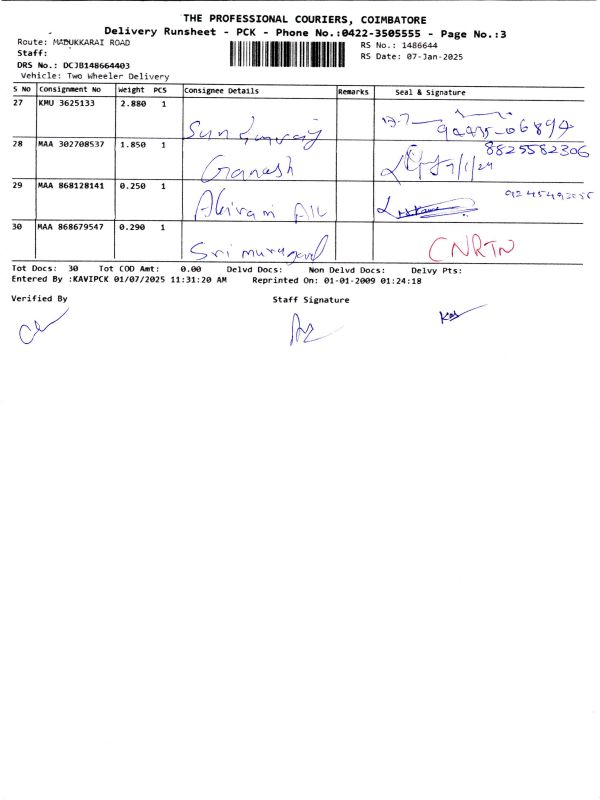 THE PROFESSIONAL COURIERS, COIMBATORE
Delivery Runsheet - PCK - Phone No.:0422-3505555 - Page No.:3
Route: MADUKKARAI ROAD
RS No.: 1486644
Staff:
RS Date: 07-Jan-2025
DRS No.: DCJB148664403
Vehicle: Two Wheeler Delivery
S No Consignment No Weight PCS Consignee Details Remarks Seal & Signature
27 KMU 3625133 2.880 1
94475-06894
28 MAA 302708537 1.850 1 Ganash
8825582306
29 MAA 868128141 0.250 1 Abirami
30 MAA 868679547 0.290 1 Sri murugan CNRTN
Tot Docs: 30 Tot COD Amt: 0.00 Delvd Docs: Non Delvd Docs: Delvy Pts:
Entered By :KAVIPCK 01/07/2025 11:31:20 AM Reprinted On: 01-01-2009 01:24:18
Verified By Staff Signature